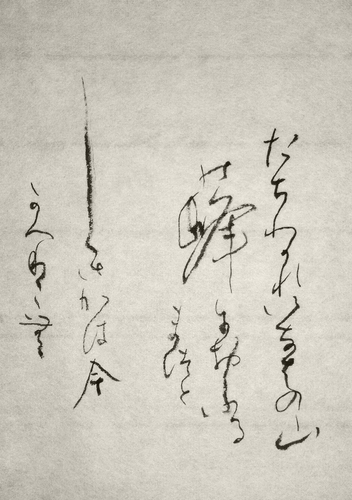 たちわかれいなはの山
の峰におふる
まつと
しきかは今
かへりこむ